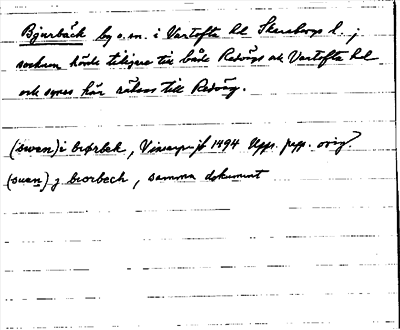 Bjurbäck by o. sn. i Vartofta hd Skaraborgs l. ;
socknen hörde tidigare till både Redvägs och Vartofta hd
och synes här räknas till Redväg.
(swen) i brørbek, 1494 Upps. papp. orig.
(suan) j brorbech, samma dokument